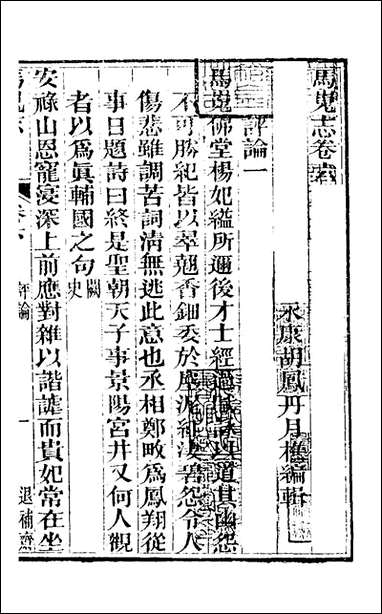 馬嵬志卷六
永康胡鳳丹月樵編輯
評論一
馬嵬佛堂楊妃縊所邇後才士經過賦詠以道其幽怨
不可勝紀皆以翠翹香鈿委於塵泥紅淒碧怨令人
傷悲雖調苦詞清無逃此意也丞相鄭畋為鳳翔從
事日題詩曰終是聖朝天子事景陽宮井又何人觀
者以為眞輔國之句闕史
安祿山恩寵寖深上前應對雜以諧謔而貴妃常在坐
馬嵬志 卷六 評論 一 退補齋